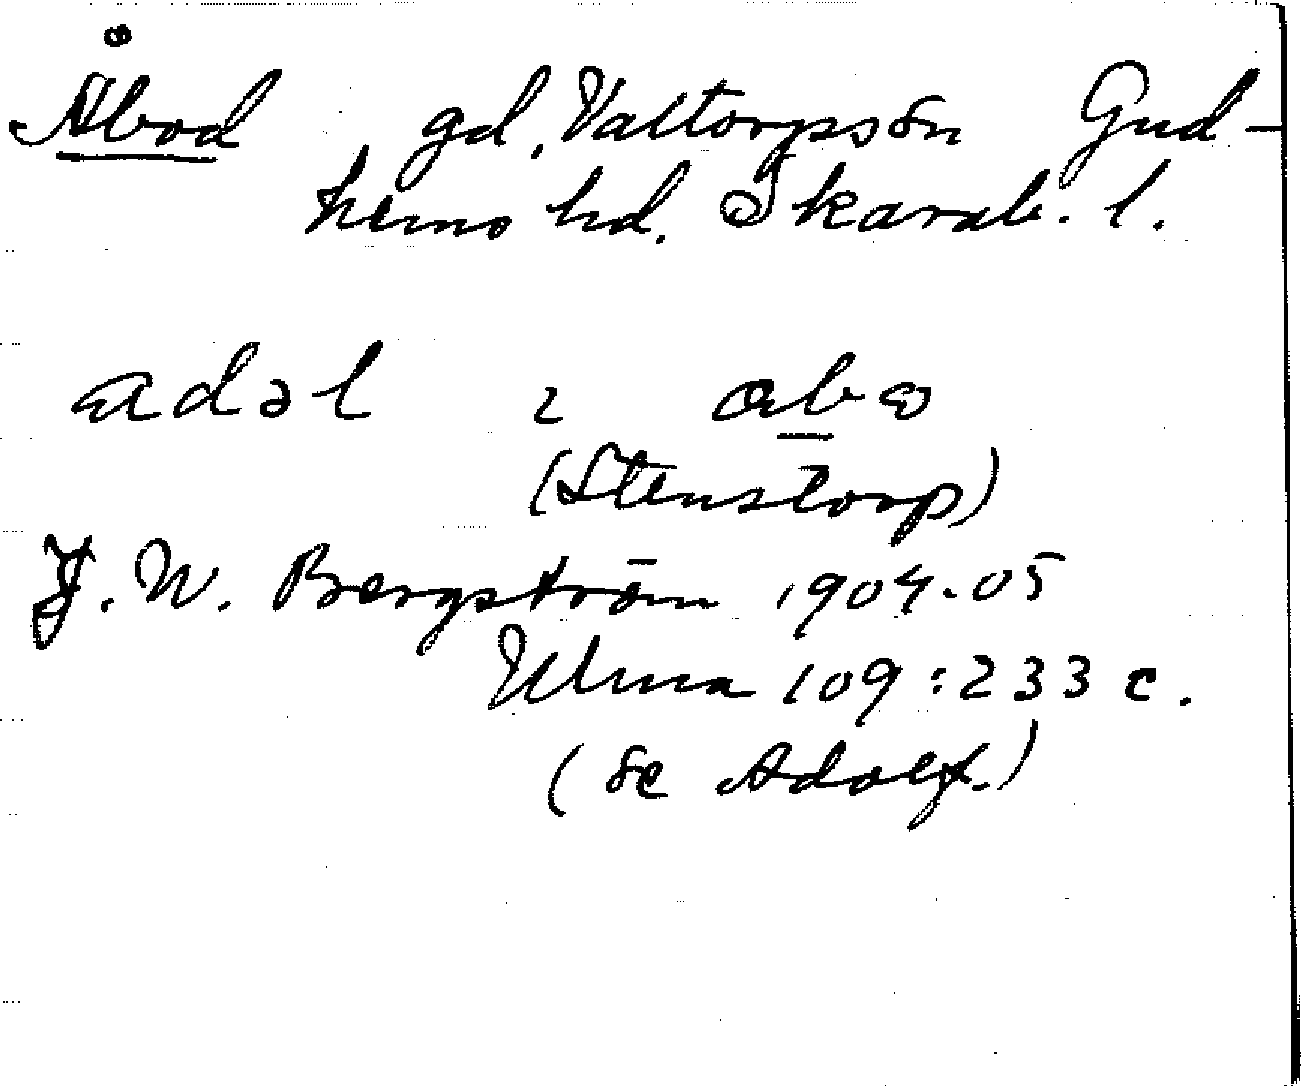 Åbod gd. Valtorps sn Gud-
hems hd. Skarab. l.
adəl ı abω
(Stenstorp)
J. W. Bergström 1904-05
Ulma 109:233 c.
(se Adolf.)